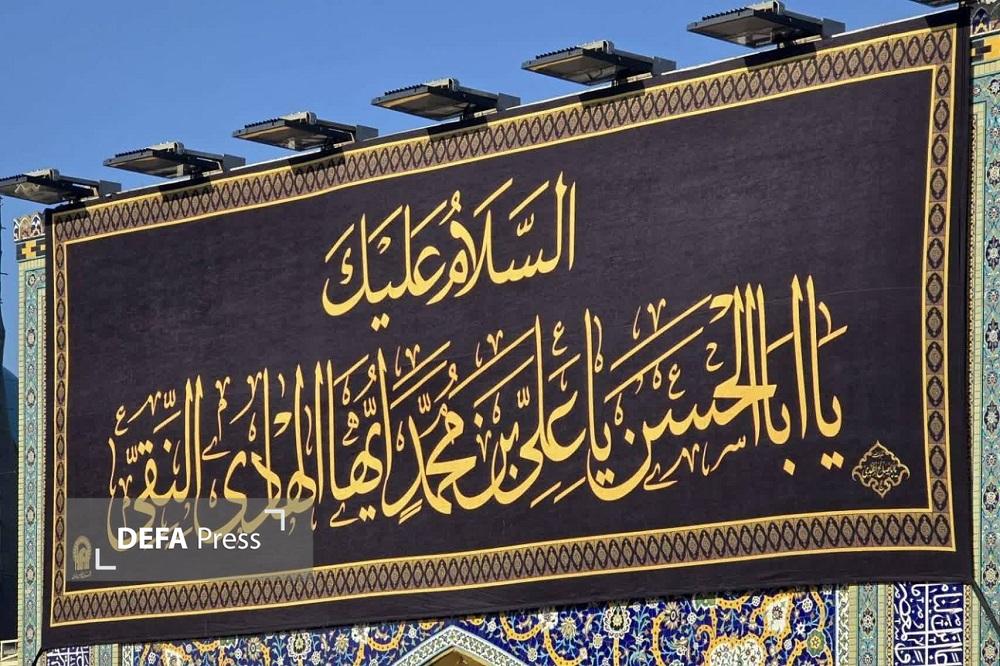 السَّلامُ عَلَیْكَ
یا اَبَاالْحَسَنِ یا عَلِیَّ بْنَ مُحَمَّدٍ اَیُّهَا الْهادِی النَّقِیُّ
DEFA Press